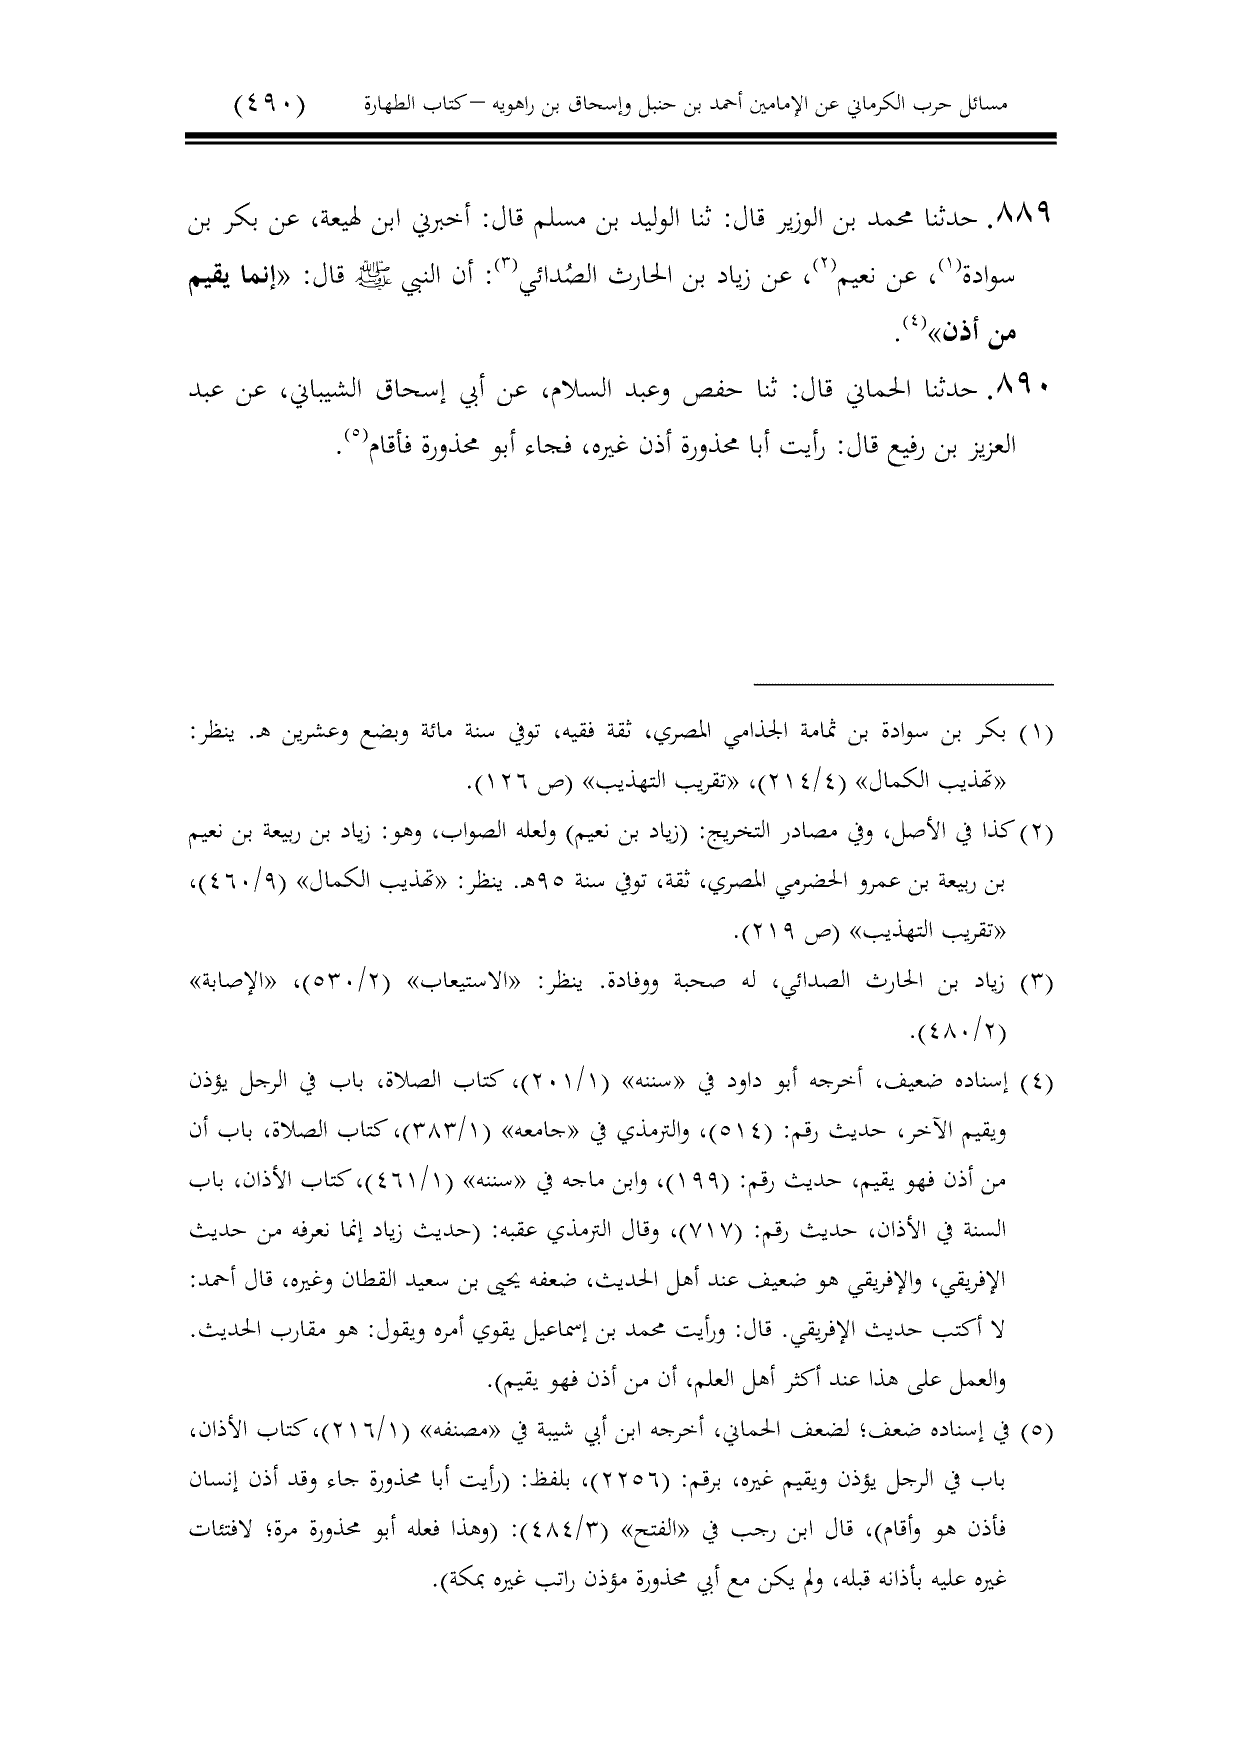 مسائل حرب الكرماني عن الإمامين أحمد بن حنبل وإسحاق بن راهويه – كتاب الطهارة (٤٩٠)
٨٨٩. حدثنا محمد بن الوزير قال: ثنا الوليد بن مسلم قال: أخبرني ابن لهيعة، عن بكر بن
سوادة(١)، عن نعيم(٢)، عن زياد بن الحارث الصُدائي(٣): أن النبي ﷺ قال: «إنما يقيم
من أذن»(٤).
٨٩٠. حدثنا الحماني قال: ثنا حفص وعبد السلام، عن أبي إسحاق الشيباني، عن عبد
العزيز بن رفيع قال: رأيت أبا محذورة أذن غيره، فجاء أبو محذورة فأقام(٥).
(١) بكر بن سوادة بن ثمامة الجذامي المصري، ثقة فقيه، توفي سنة مائة وبضع وعشرين هـ. ينظر:
«تهذيب الكمال» (٢١٤/٤)، «تقريب التهذيب» (ص ١٢٦).
(٢) كذا في الأصل، وفي مصادر التخريج: (زياد بن نعيم) ولعله الصواب، وهو: زياد بن ربيعة بن نعيم
بن ربيعة بن عمرو الحضرمي المصري، ثقة، توفي سنة ٩٥هـ. ينظر: «تهذيب الكمال» (٤٦٠/٩)،
«تقريب التهذيب» (ص ٢١٩).
(٣) زياد بن الحارث الصدائي، له صحبة ووفادة. ينظر: «الاستيعاب» (٥٣٠/٢)، «الإصابة»
(٤٨٠/٢).
(٤) إسناده ضعيف، أخرجه أبو داود في «سننه» (٢٠١/١)، كتاب الصلاة، باب في الرجل يؤذن
ويقيم الآخر، حديث رقم: (٥١٤)، والترمذي في «جامعه» (٣٨٣/١)، كتاب الصلاة، باب أن
من أذن فهو يقيم، حديث رقم: (١٩٩)، وابن ماجه في «سننه» (٤٦١/١)، كتاب الأذان، باب
السنة في الأذان، حديث رقم: (٧١٧)، وقال الترمذي عقبه: (حديث زياد إنما نعرفه من حديث
الإفريقي، والإفريقي هو ضعيف عند أهل الحديث، ضعفه يحيى بن سعيد القطان وغيره، قال أحمد:
لا أكتب حديث الإفريقي. قال: ورأيت محمد بن إسماعيل يقوي أمره ويقول: هو مقارب الحديث.
والعمل على هذا عند أكثر أهل العلم، أن من أذن فهو يقيم).
(٥) في إسناده ضعف؛ لضعف الحماني، أخرجه ابن أبي شيبة في «مصنفه» (٢١٦/١)، كتاب الأذان،
باب في الرجل يؤذن ويقيم غيره، برقم: (٢٢٥٦)، بلفظ: (رأيت أبا محذورة جاء وقد أذن إنسان
فأذن هو وأقام)، قال ابن رجب في «الفتح» (٤٨٤/٣): (وهذا فعله أبو محذورة مرة؛ لافتئات
غيره عليه بأذانه قبله، ولم يكن مع أبي محذورة مؤذن راتب غيره بمكة).